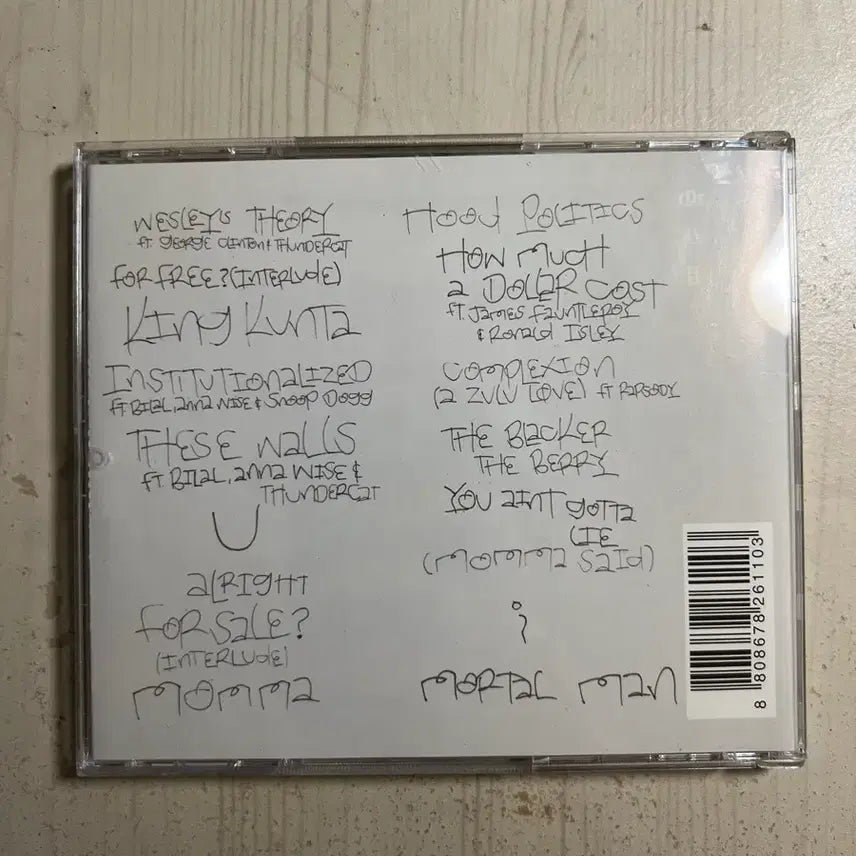 WESLEY'S THEORY
ft. GEORGE CLINTON & THUNDERCAT
FOR FREE? (INTERLUDE)
KING KUNTA
INSTITUTIONALIZED
ft. BILAL, ANNA WISE & SNOOP DOGG
THESE WALLS
ft BILAL, ANNA WISE &
THUNDERCAT
U
ALRIGHT
FOR SALE?
(INTERLUDE)
MOMMA
HOOD POLITICS
HOW MUCH
A DOLLAR COST
ft. JAMES FAUNTLEROY
& RONALD ISLEY
COMPLEXION
(A ZULU LOVE) ft RAPSODY
THE BLACKER
THE BERRY
YOU AINT GOTTA
LIE
(MOMMA SAID)
i
MORTAL MAN
8 808678 261103